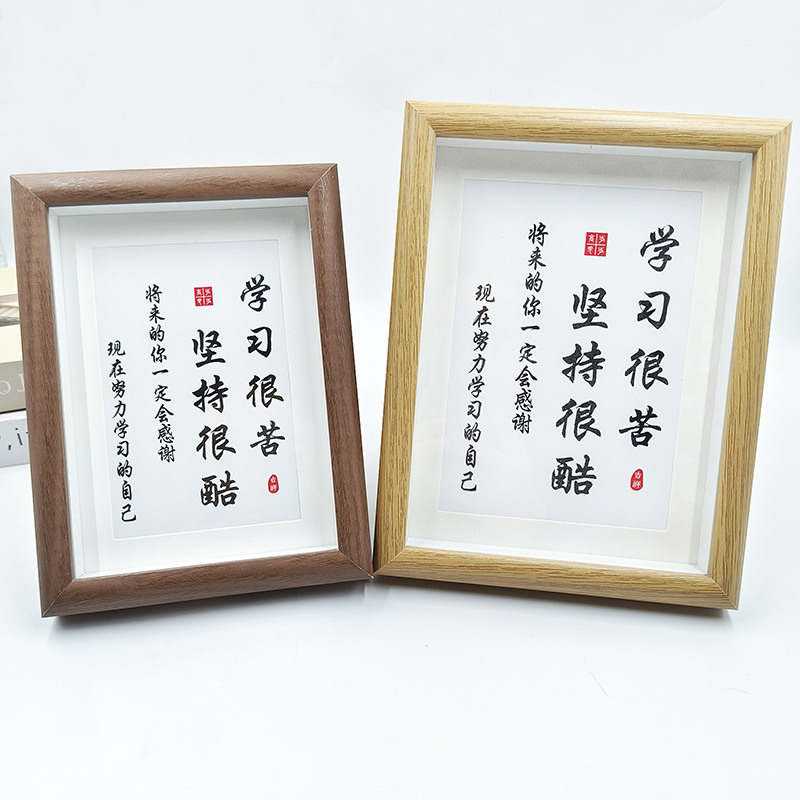 学习很苦
坚持很酷
将来的你一定会感谢
现在努力学习的自己
吉祥
学习很苦
坚持很酷
将来的你一定会感谢
现在努力学习的自己
吉祥